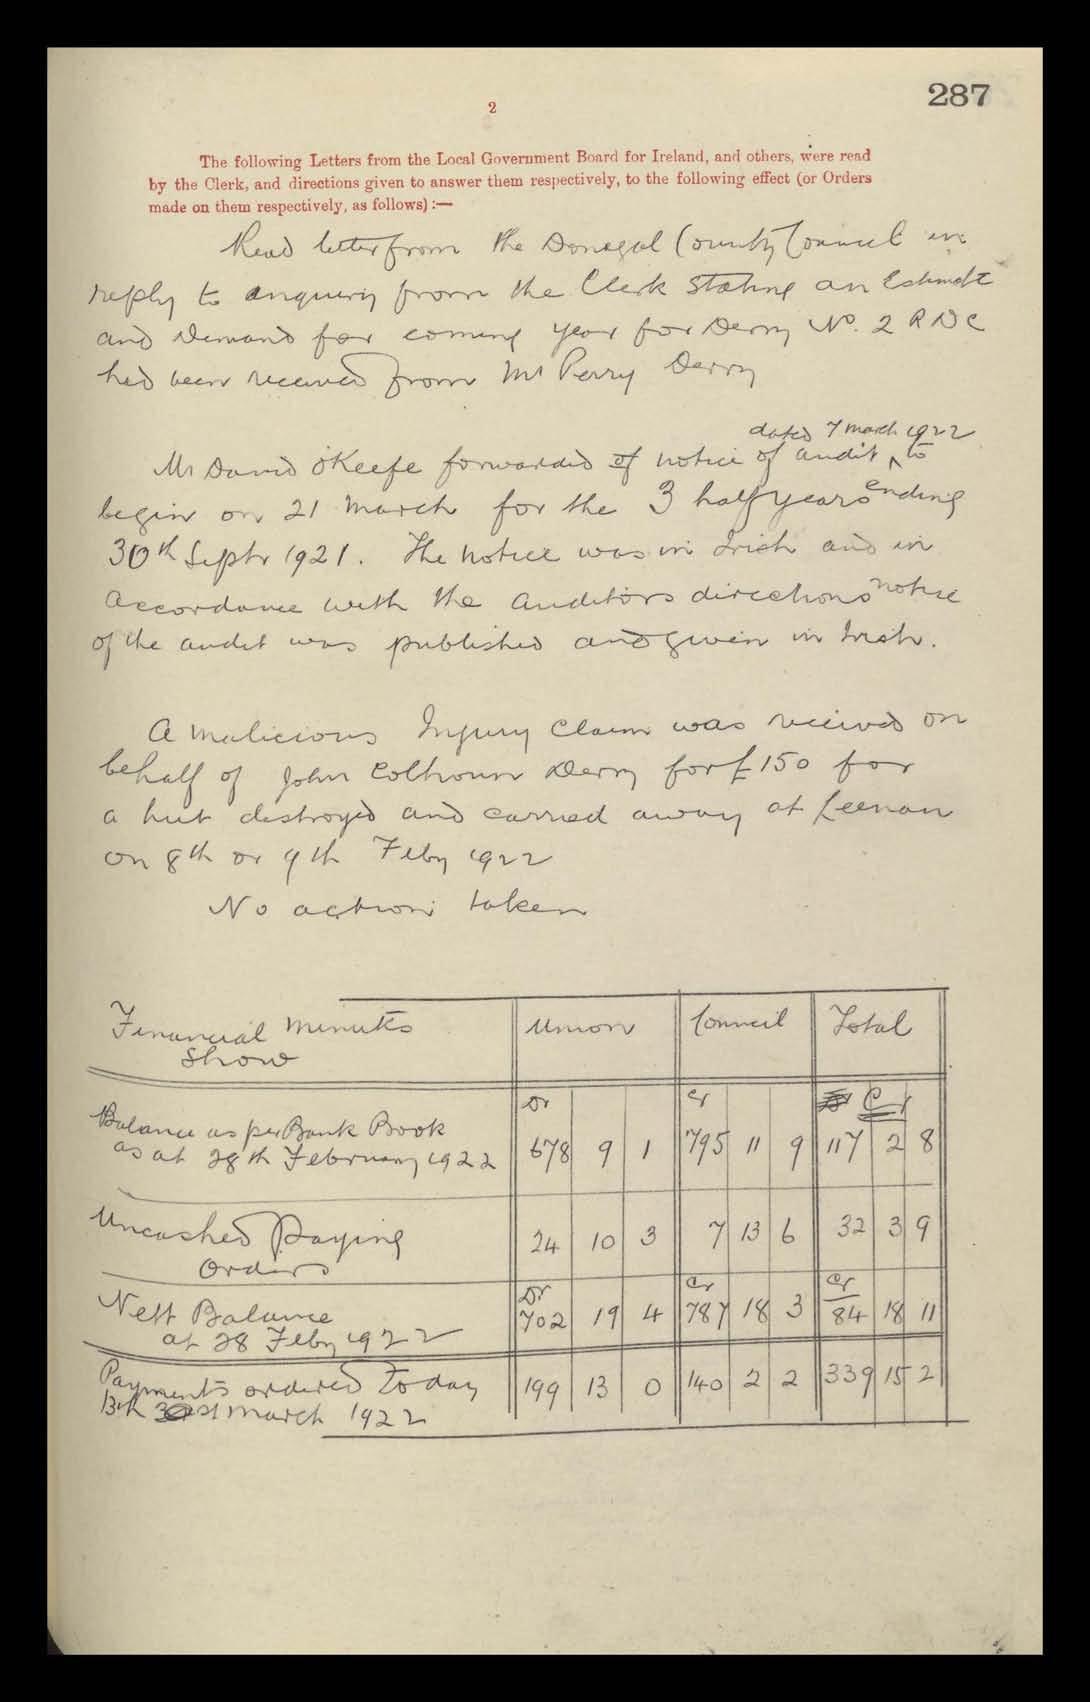 287
2
The following Letters from the Local Government Board for Ireland, and others, were read
by the Clerk, and directions given to answer them respectively, to the following effect (or Orders
made on them respectively, as follows) :—
Read letter from the Donegal County Council in
reply to enquiry from the Clerk stating an Estimate
and Demand for coming year for Derry No. 2 R D C
had been received from Mr Perry Derry
dated 7 march 1922
Mr David O'Keefe forwarded of notice of audit ^ to
begin on 21 March for the 3 half years ending
30th Septr 1921. The notice was in Irish and in
accordance with the auditors directions notice
of the audit was published and given in Irish.
A malicious Injury Claim was received on
behalf of John Colhoun Derry for £150 for
a hut destroyed and carried away at Leenan
on 8th or 9th Feby 1922
No action taken
Financial minutes Union Council Total
Show
Dr Cr Dr Cr
Balance as per Bank Book
as at 28th February 1922 678 9 1 795 11 9 117 2 8
Uncashed Paying 24 10 3 7 13 6 32 3 9
Orders
Dr Cr Cr
Nett Balance 702 19 4 787 18 3 84 18 11
at 28 Feby 1922
Payments ordered Today 199 13 0 140 2 2 339 15 2
13th march 1922